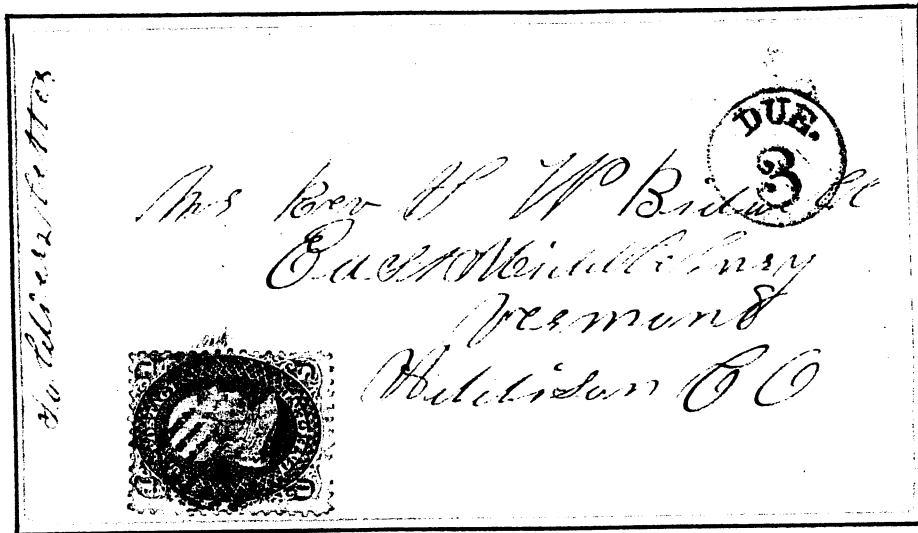 Soldiers letter
DUE.
3
Mrs Rev H W Bidwell
East Middlebury
Vermont
Addison CO